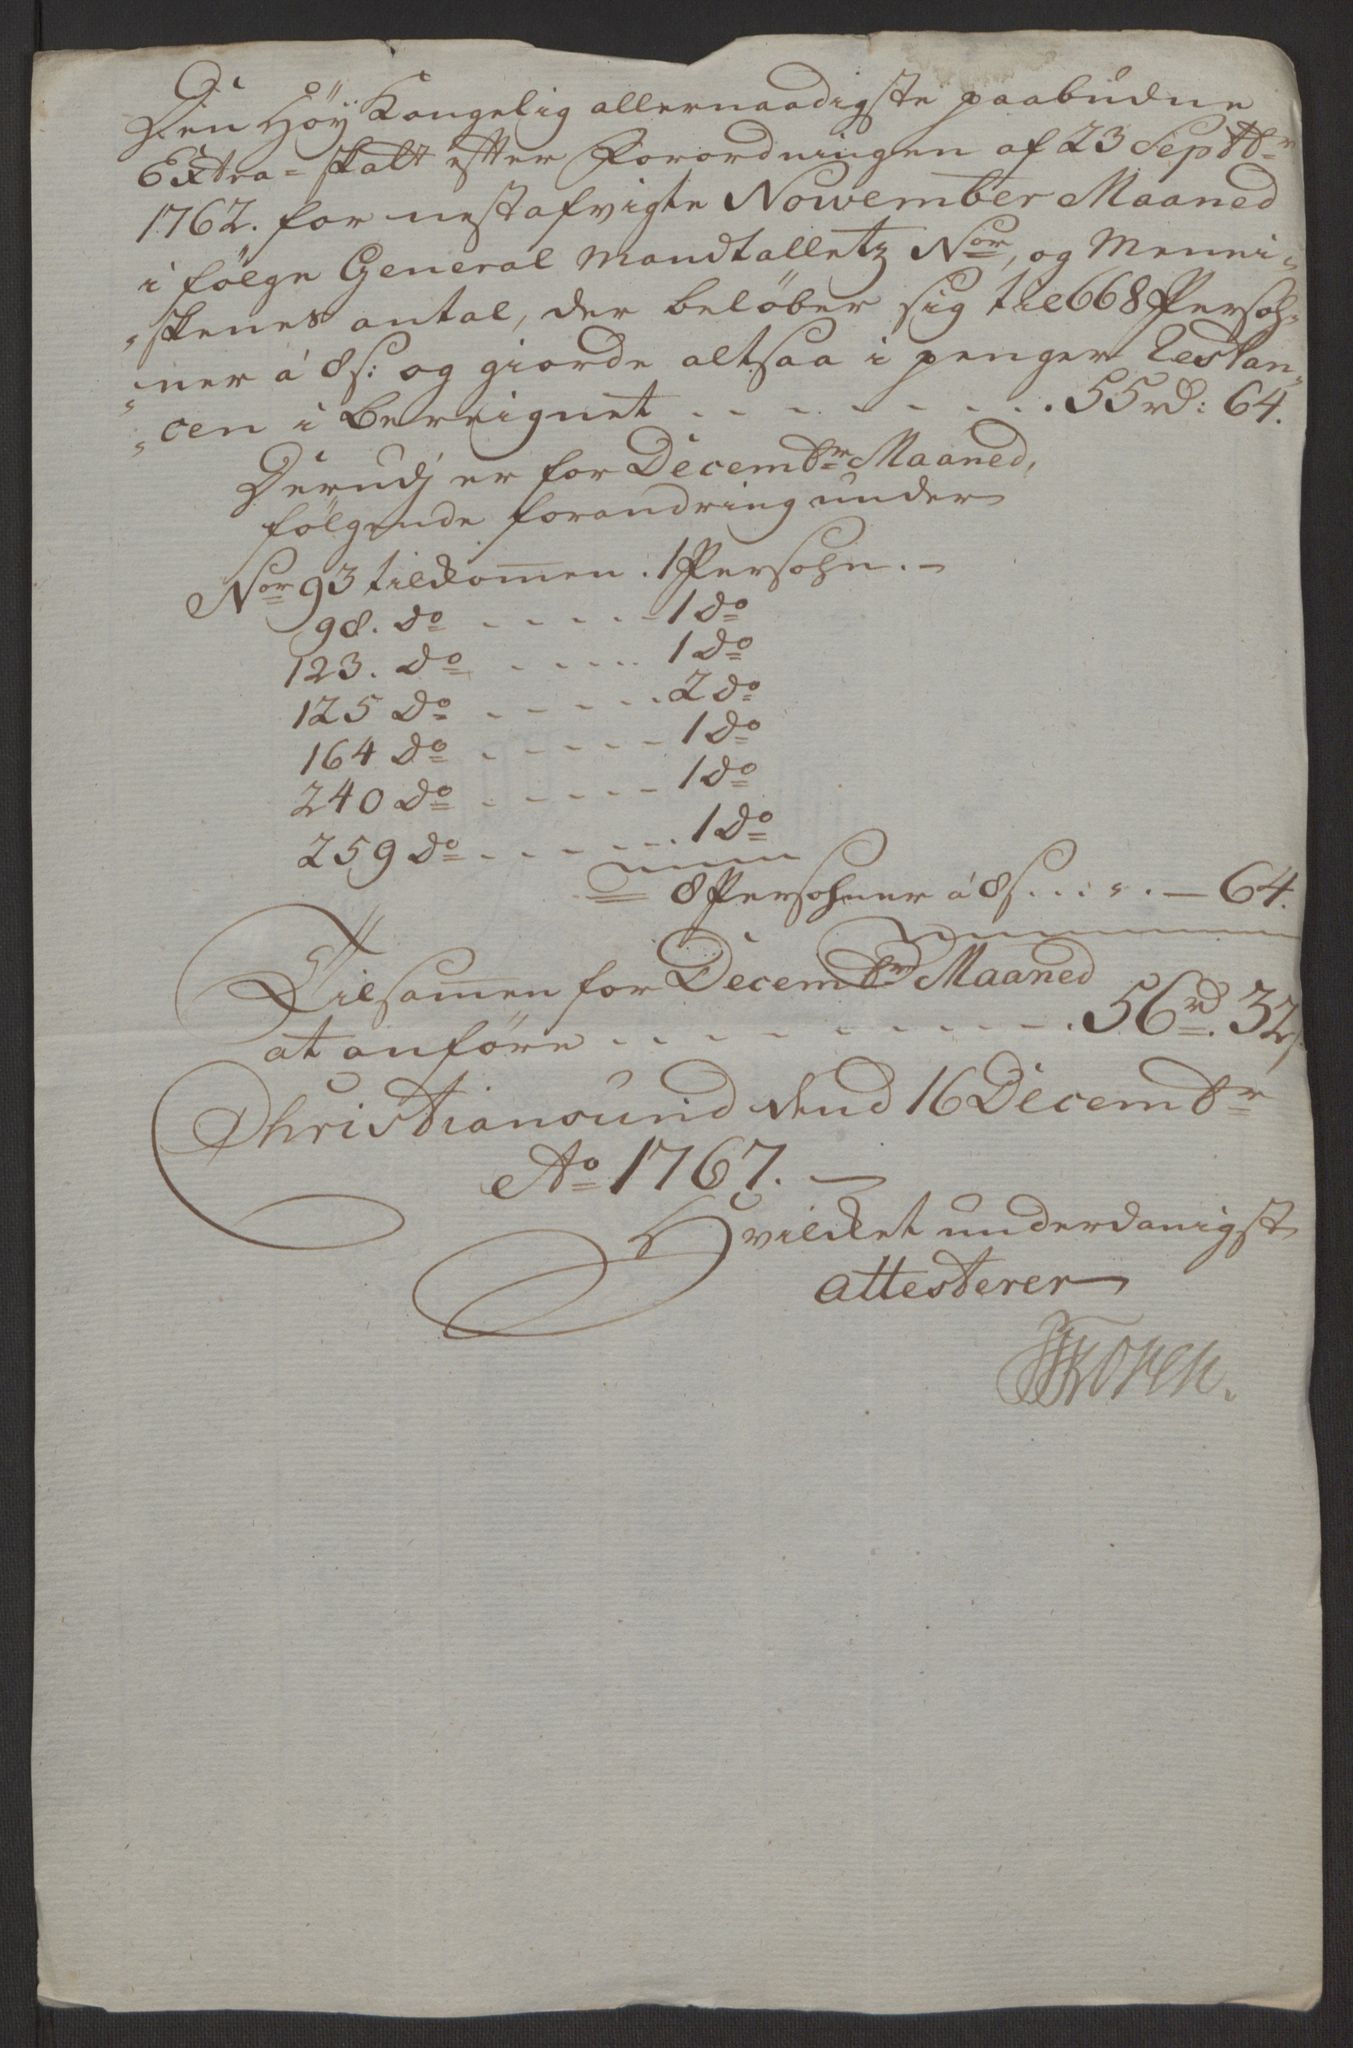 Den Höÿ Kongelig allernaadigste paabudne
Extra-Skatt efter Forordningen af 23 Septbr
1762. for nestafvigte November Maaned
i følge General Mandtalletz Nor, og Menni-
„skenes antal, der beløber sig til 668 Persoh-
„ner á 8s: og giorde altsaa i penger Restan-
„cen i bereignet . . . . . . . . 55rd: 64.
Derudj er for Decembr Maaned,
følgende forandring under
Nor 93 tilkommen . 1 Persohn. -
98. do . . . . . 1 do
123. do . . . . . 1 do
125 do . . . . . 2 do
164 do . . . . . 1 do
240 do . . . . . 1 do
259 do . . . . . 1 do
8 Persohner á 8s. . . . . — 64.
Tilsammen for Decembr Maaned
at anføre . . . . . . . . 56rd. 32s
Christiansund dend 16 Decembr
Ao 1767. —
Hvilket underdanigst
attesterer
Koren.